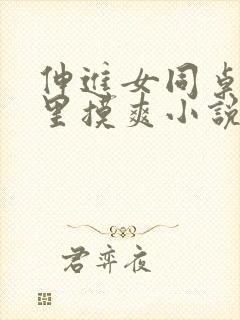 伸進女同桌
里摸爽小說
君弈夜